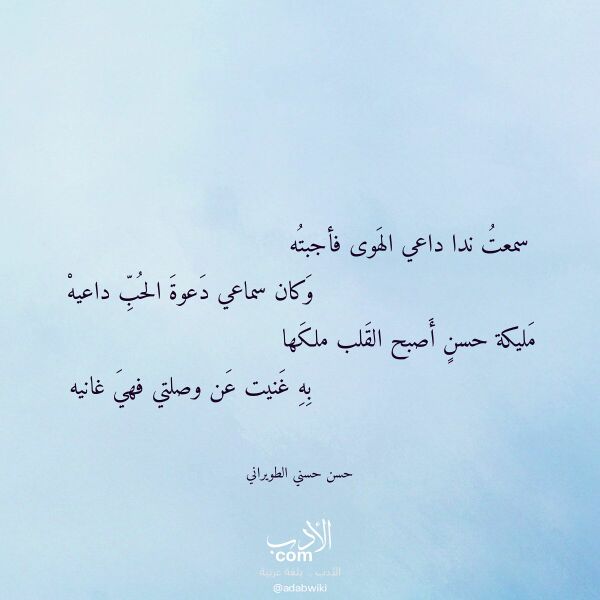 سمعتُ ندا داعي الهَوى فأجبتُه
وَكان سماعي دَعوةَ الحُبِّ داعيهْ
مَليكة حسنٍ أَصبح القَلب ملكَها
بِهِ غَنيت عَن وصلتي فهيَ غانيه
حسن حسني الطويراني
الأدب
com
الأدب .. بلغة عربية
@adabwiki